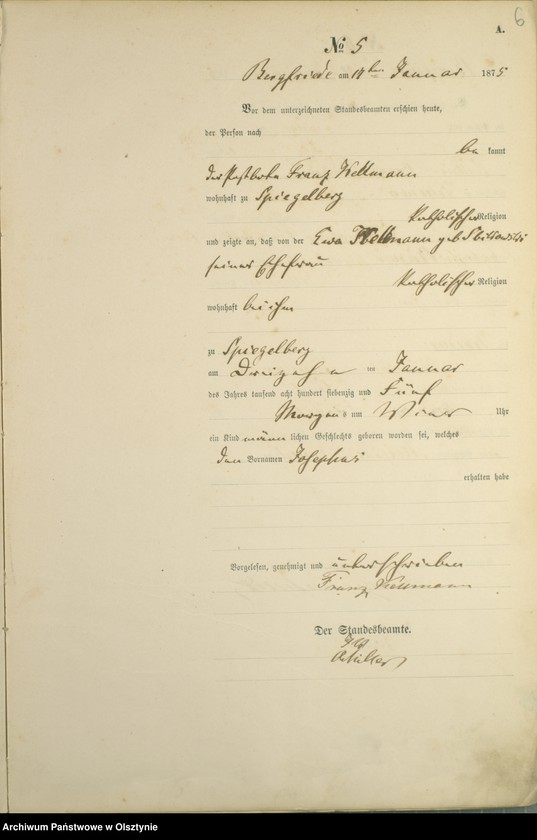 6
A.
No 5
Bergfriede am 14ten Januar 1875
Vor dem unterzeichneten Standesbeamten erschien heute,
der Person nach
be kannt
der Postbote Franz
wohnhaft zu Spiegelberg
katholischer Religion
und zeigte an, daß von der Ewa geb
seiner Ehefrau
katholischer Religion
wohnhaft bei ihm
zu Spiegelberg
am Dreizehn ten Januar
des Jahres tausend acht hundert siebenzig und Fünf
Morgens um Uhr
ein Kind männ lichen Geschlechts geboren worden sei, welches
den Vornamen Josephus
erhalten habe
Vorgelesen, genehmigt und unterschrieben
Franz
Der Standesbeamte.
Archiwum Państwowe w Olsztynie